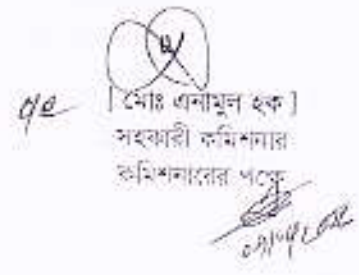 [ মোঃ এনামুল হক ]
সহকারী কমিশনার
কমিশনারের পক্ষে